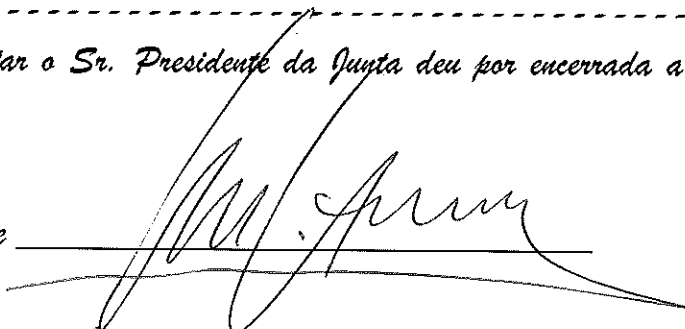 tar o Sr. Presidente da Junta deu por encerrada a
e